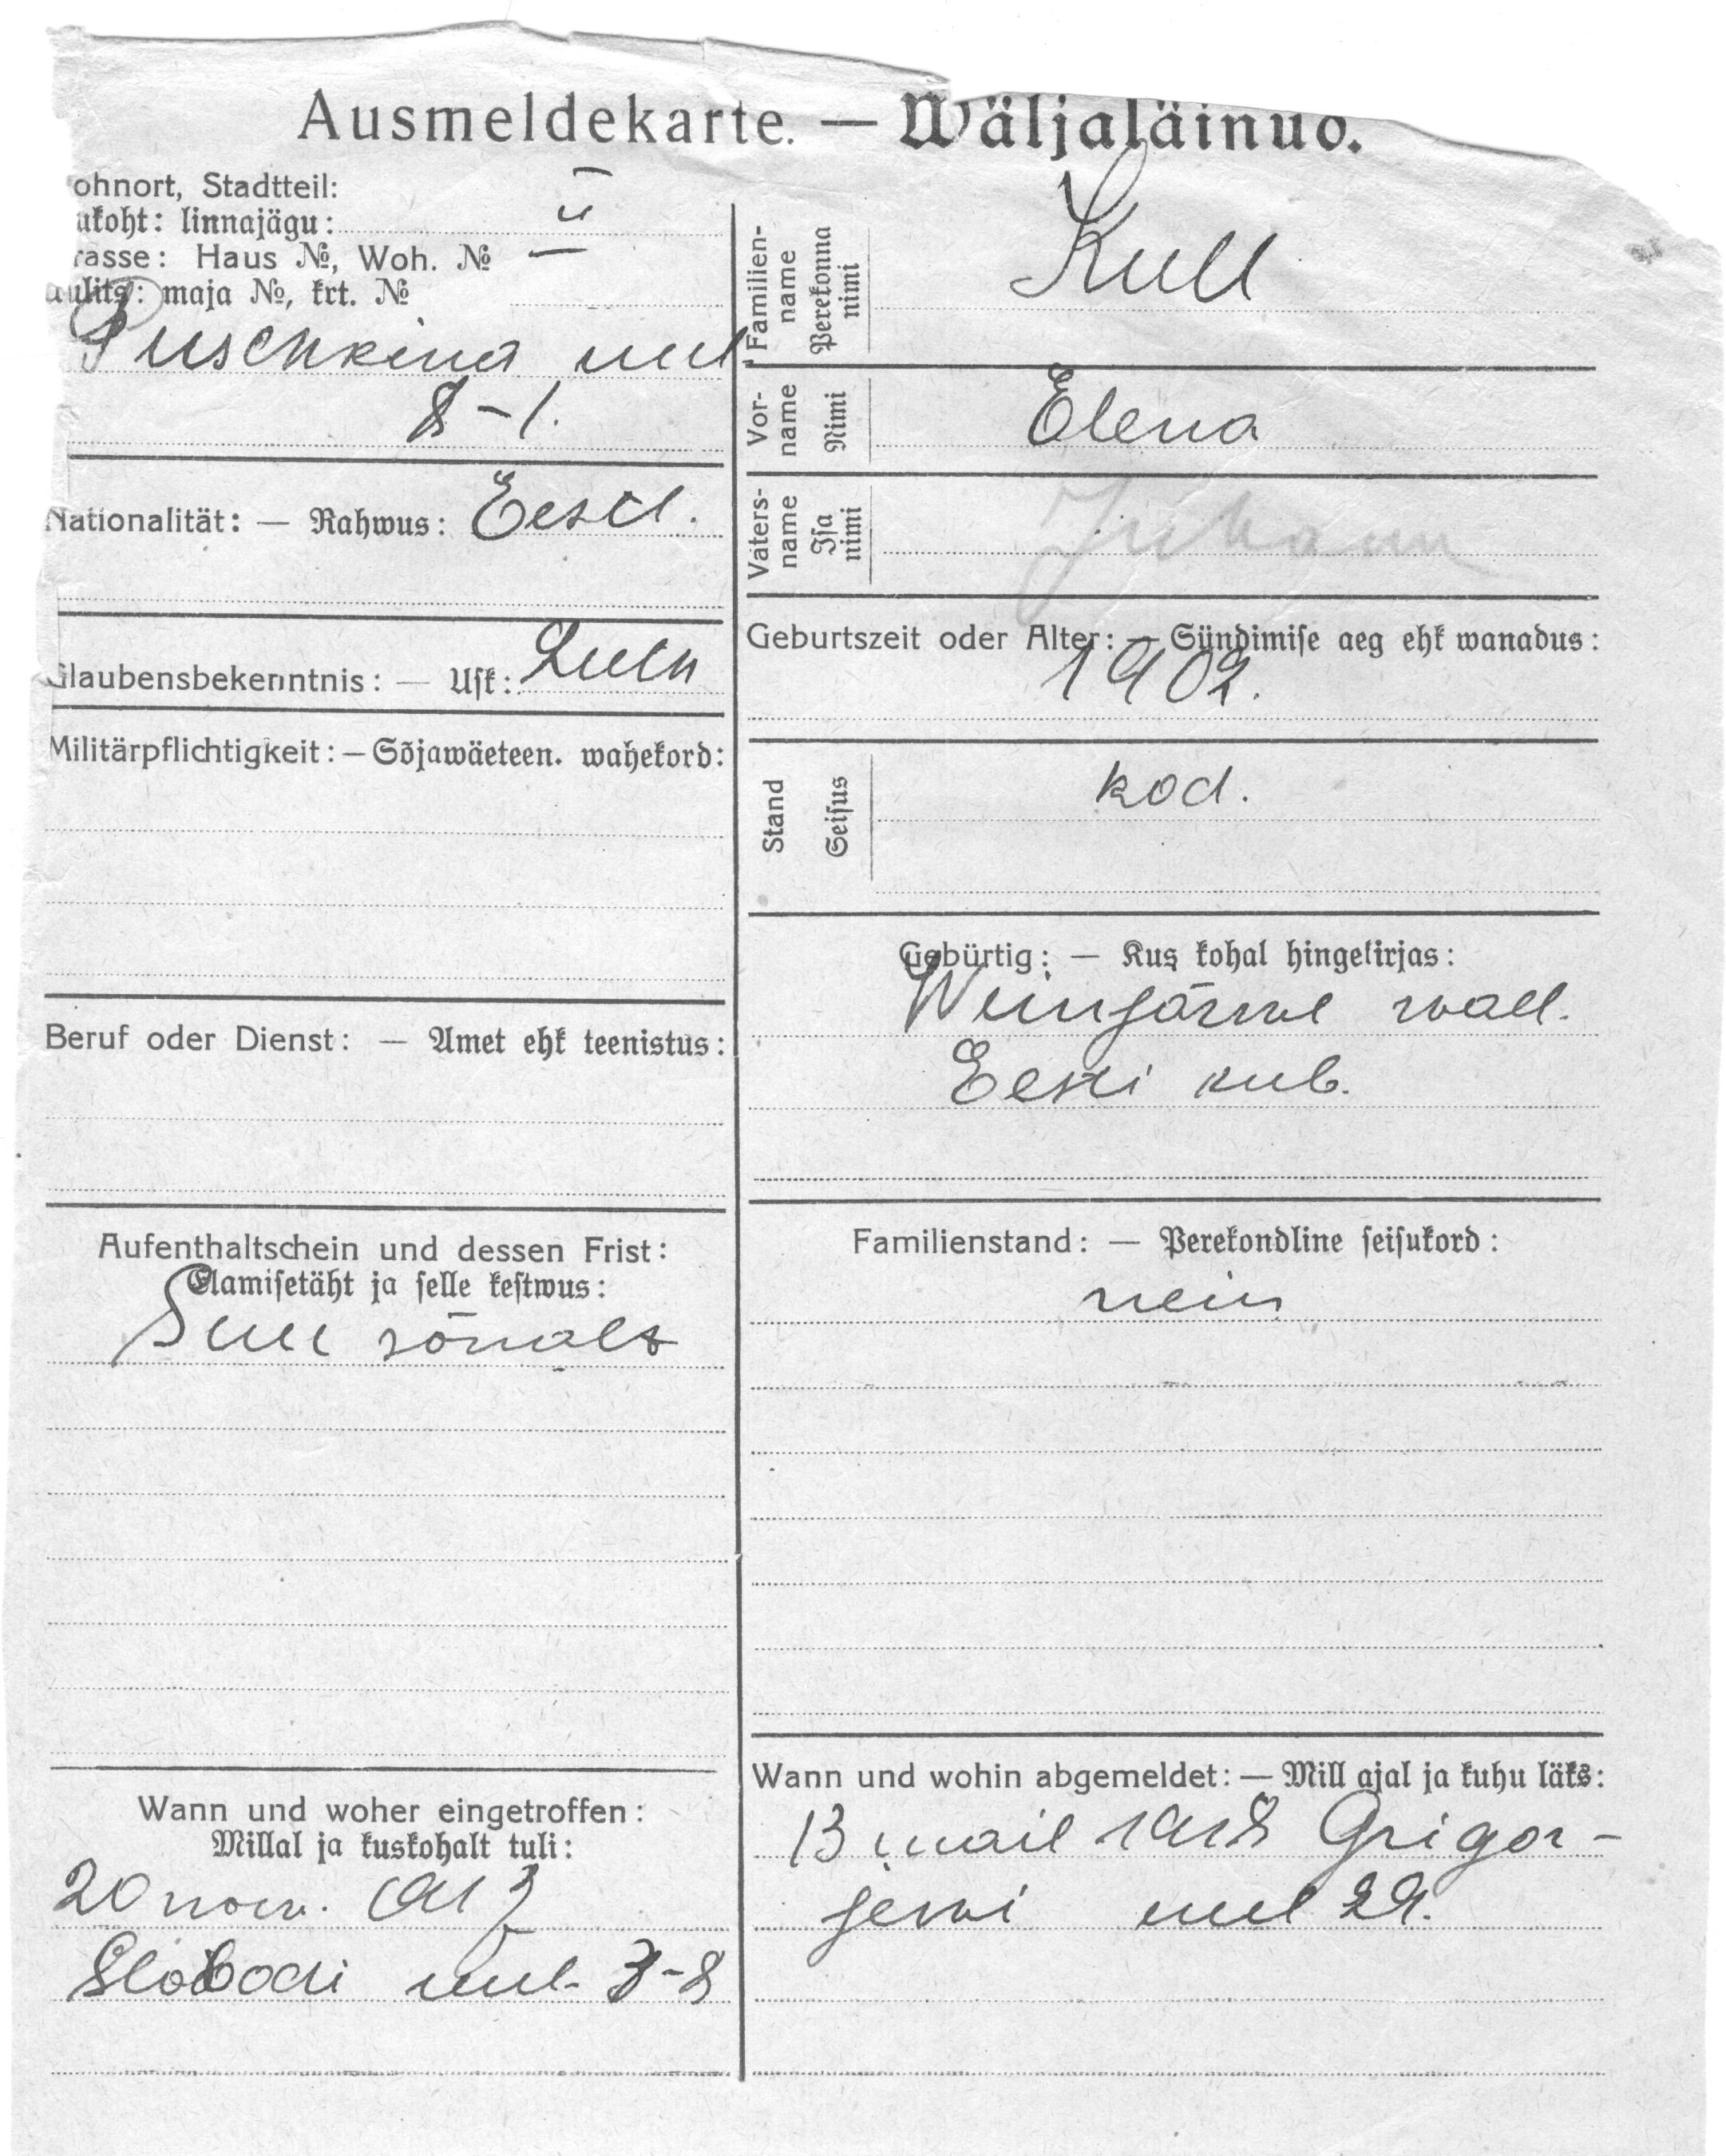 Ausmeldekarte. — Wäljaläinuo.
ohnort, Stadtteil:
ukoht: linnajägu: II
rasse: Haus №, Woh. №
uulits: maja №, krt. №
Puschkina uul
8-1.
Nationalität: — Rahwus: Eestl.
Glaubensbekenntnis: — Usk: Luth
Militärpflichtigkeit: — Sõjawäeteen. wahekord:
Beruf oder Dienst: — Amet ehk teenistus:
Aufenthaltschein und dessen Frist:
Elamisetäht ja selle kestwus:
Suu sõnals
Wann und woher eingetroffen:
Millal ja kuskohalt tuli:
20 now. 1917
Slobodi uul. 3-8
Familien-name Perekonna nimi Kull
Vor-name Nimi Elena
Vaters-name Isa nimi Juhann
Geburtszeit oder Alter: — Sündimise aeg ehk wanadus:
1902.
Stand Seisus kod.
Gebürtig: — Kus kohal hingekirjas:
Weinjärwe wall.
Eesti kub.
Familienstand: — Perekondline seisukord:
neiu
Wann und wohin abgemeldet: — Mill ajal ja kuhu läks:
13 mail 1918 Grigor-
jewi uul 29.